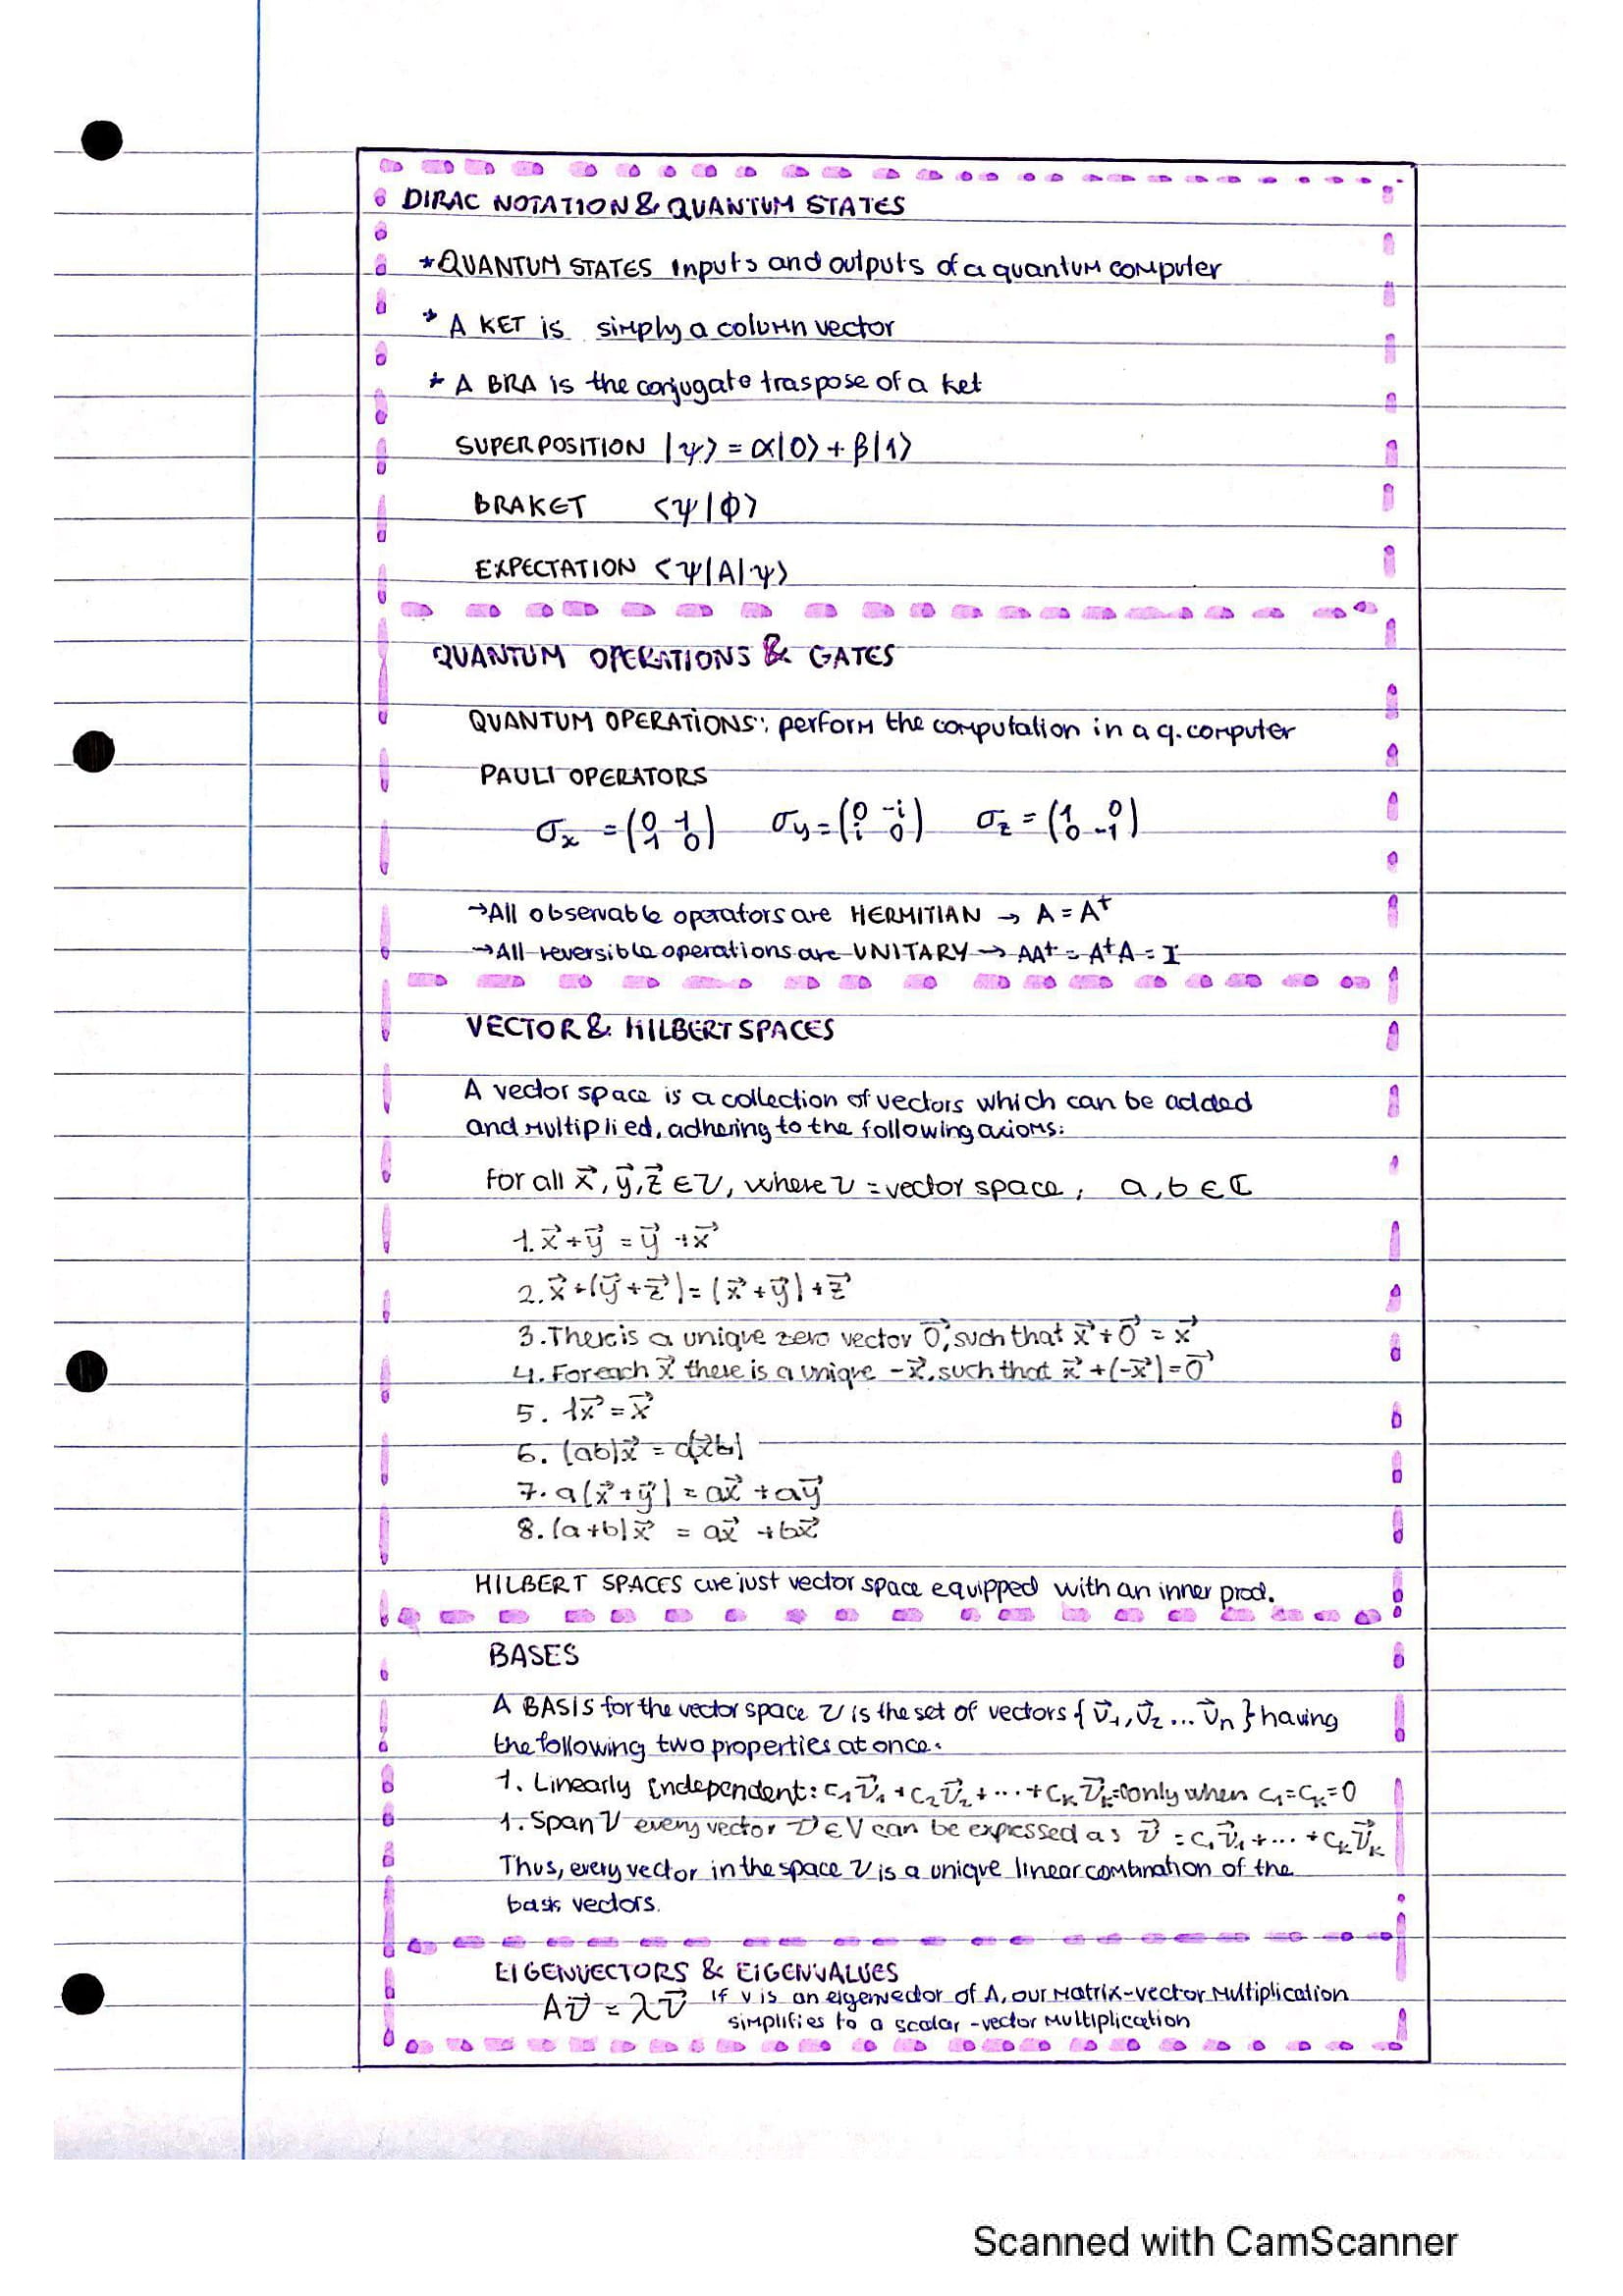 DIRAC NOTATION & QUANTUM STATES
*QUANTUM STATES Inputs and outputs of a quantum computer
* A KET is simply a column vector
* A BRA is the conjugate traspose of a ket
SUPERPOSITION |ψ⟩ = α|0⟩ + β|1⟩
BRAKET ⟨ψ|Φ⟩
EXPECTATION ⟨ψ|A|ψ⟩
QUANTUM OPERATIONS & GATES
QUANTUM OPERATIONS: perform the computation in a q. computer
PAULI OPERATORS
σx = (0 1 1 0) σy = (0 -i i 0) σz = (1 0 0 -1)
→All observable operators are HERMITIAN → A = A†
→All reversible operations are UNITARY → AA† = A†A = I
VECTOR & HILBERT SPACES
A vector space is a collection of vectors which can be added
and multiplied, adhering to the following axioms:
for all x⃗, y⃗, z⃗ ∈ V, where V = vector space, a, b ∈ ℂ
1. x⃗ + y⃗ = y⃗ + x⃗
2. x⃗ + (y⃗ + z⃗) = (x⃗ + y⃗) + z⃗
3. There is a unique zero vector 0⃗, such that x⃗ + 0⃗ = x⃗
4. For each x⃗ there is a unique -x⃗, such that x⃗ + (-x⃗) = 0⃗
5. 1x⃗ = x⃗
6. (ab)x⃗ = a(x⃗b)
7. a(x⃗ + y⃗) = ax⃗ + ay⃗
8. (a+b)x⃗ = ax⃗ + bx⃗
HILBERT SPACES are just vector space equipped with an inner prod.
BASES
A BASIS for the vector space V is the set of vectors {v⃗1, v⃗2 ... v⃗n} having
the following two properties at once.
1. Linearly Independent: c1v⃗1 + c2v⃗2 + ... + cKv⃗K=0 only when c1=cK=0
1. Span V every vector v⃗ ∈ V can be expressed as v⃗ = c1v⃗1 + ... + ckv⃗k
Thus, every vector in the space V is a unique linear combination of the
basis vectors.
EIGENVECTORS & EIGENVALUES
Av⃗ = λv⃗ If v is an eigenvector of A, our matrix-vector multiplication
simplifies to a scalar-vector multiplication
Scanned with CamScanner